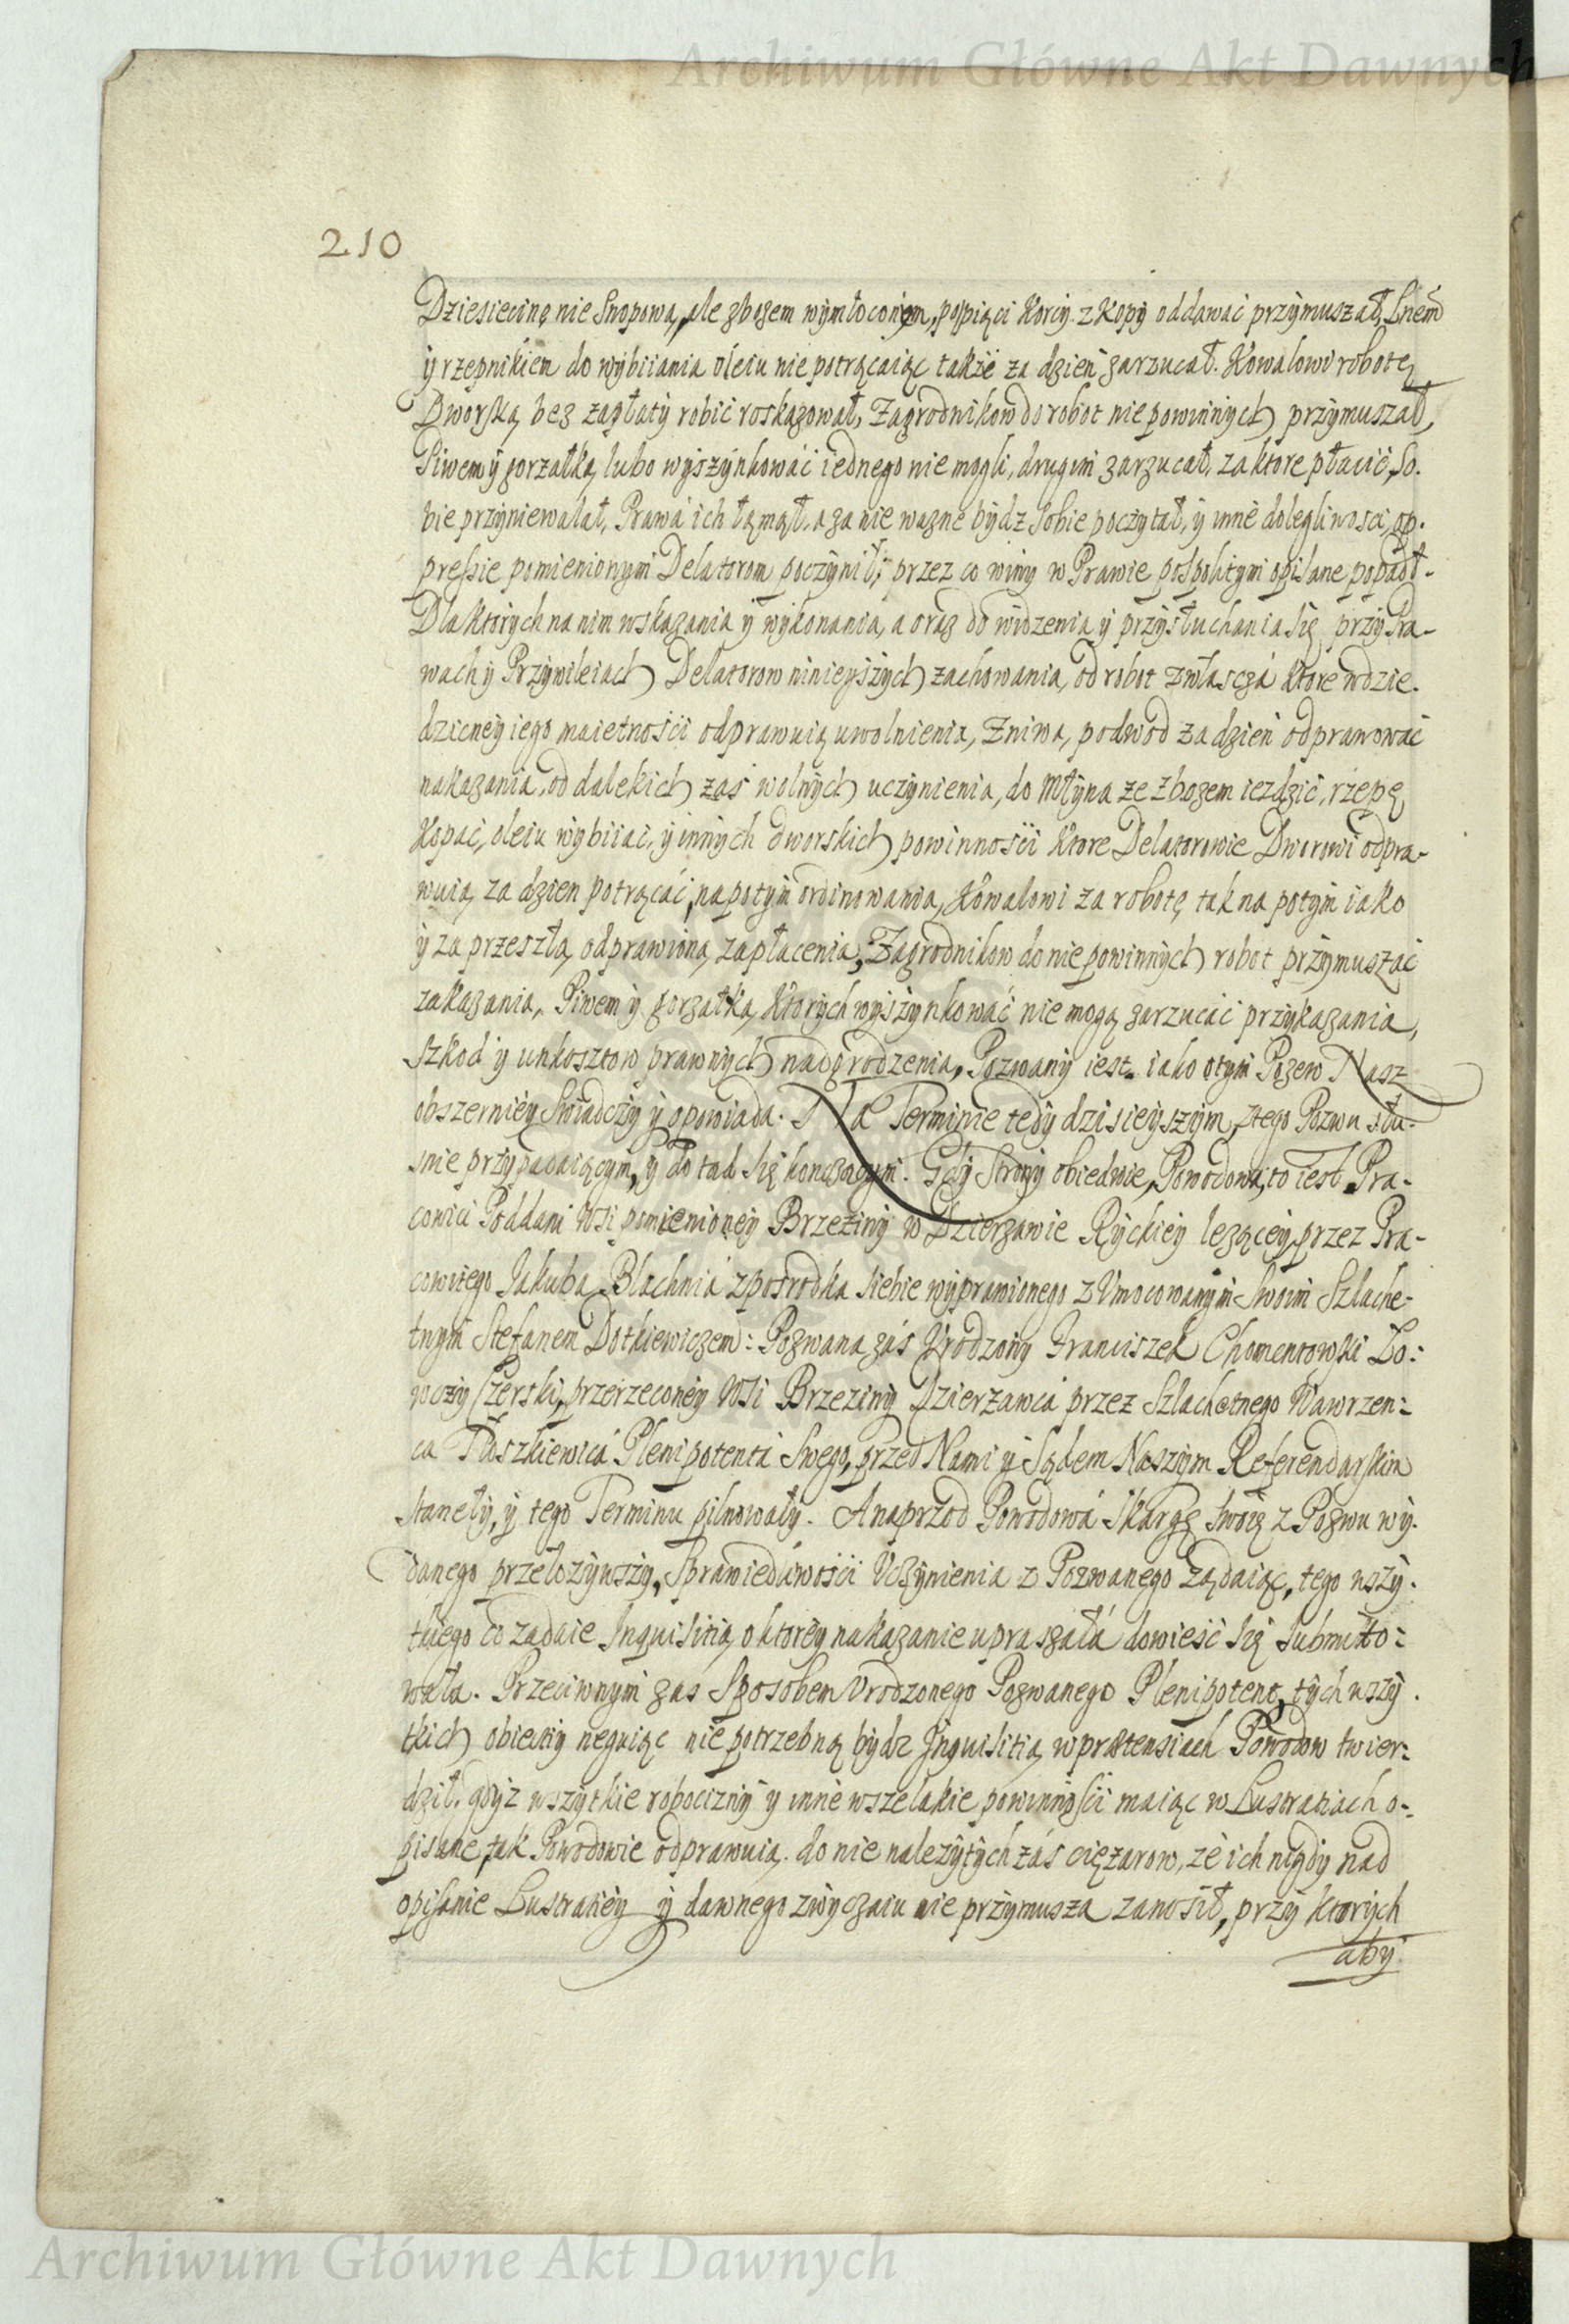 Archiwum Główne Akt Dawnych
210
Dziesiecinę nie Snopową, ale zbożem wymłoconym, po piąci Korcy z Kopy oddawać przymuszał, Lnem
y rzepnikiem do wybiiania oleiu nie potrącaiąc także za dzień zarzucał. Kowalowi robotę
Dworską bez zapłaty robić roskazował, Zagrodnikow do robot nie powinnych przymuszał,
Piwem y gorzałką, lubo wyszynkować iednego nie mogli, drugim zarzucał, za ktore płacić So-
bie przyniewalał, Prawa ich łąmął, a za nie wazne bydz Sobie poczytał, y inne dolegliwosci, op-
pressie pomienionym Delatorom poczynił; przez co winy w Prawie pospolitym opisane popadł.
Dla ktorych na nim wskazania y wykonania, a oraz do widzenia y przysłuchania się przy Pra-
wach y Przywileiach Delatorow ninieyszych zachowania, od robot zwłascza ktore w dzie-
dziczney iego maietności odprawuią uwolnienia, Żniwa, podwod za dzień odprawować
nakazania, od dalekich zaś wolnych uczynienia, do Młyna ze zbożem iezdzić, rzepę
Kopać, oleiu wybiiać, y innych dworskich powinności ktore Delatorowie Dworowi odpra-
wuią, za dzien potrącać, na potym ordinowania, Kowalowi za robotę tak na potym iako
y za przeszłą odprawioną zapłacenia, Zagrodnikow do nie powinnych robot przymuszać
zakazania, Piwem y gorzałką, ktorych wyszynkować nie mogą zarzucać przykazania,
Szkod y unkosztow prawnych nadgrodzenia, Pozwany iest. iako o tym Pozew Nasz
obszerniey Swiadczy y opowiada. Na Terminie tedy dzisieyszym, z tego Pozwu słu-
snie przypadaiącym, y do tąd się konczącym. Gdy Strony obiedwie, Powodowa, to iest Pra-
cowici Poddani Wsi pomienioney Brzeziny w Dzierzawie Ryckiey lezącey, przez Pra-
cowitego Jakuba Blachnia z posrodka siebie wyprawionego z Umocowanym Swoim Szlache-
tnym Stefanem Dotkiewiczem: Pozwana zaś Urodzony Franciszek Chomentowski Ło-
wczy Czerski, przerzeczoney Wsi Brzeziny Dzierzawca przez Szlachetnego Wawrzen-
ca Tłoszkiewica Plenipotenta Swego, przed Nami y Sądem Naszym Referendarskim
stanęły, y tego Terminu pilnowały. A naprzod Powodowa Skargę swoię z Pozwu wy-
danego przełozywszy, Sprawiedliwości Uczynienia z Pozwanego żądaiąc, tego wszy-
tkiego co zadaie Inquisitią, o ktorey nakazanie upraszała dowieść się submitto-
wała. Przeciwnym zas Sposobem Urodzonego Pozwanego Plenipotent, tych wszy-
tkich obiekcy neguiąc nie potrzebną bydz Inquisitią w prætensiach Powodow twier-
dził, gdyz wszytkie robocizny y inne wszelakie powinności maiąc w Lustratiach o-
pisane, tak Powodowie odprawuią. do nie nalezytych zaś ciężarow, ze ich nigdy nad
opisanie Lustratiey y dawnego zwyczaiu nie przymusza zanosił, przy ktorych
aby
Archiwum Główne Akt Dawnych